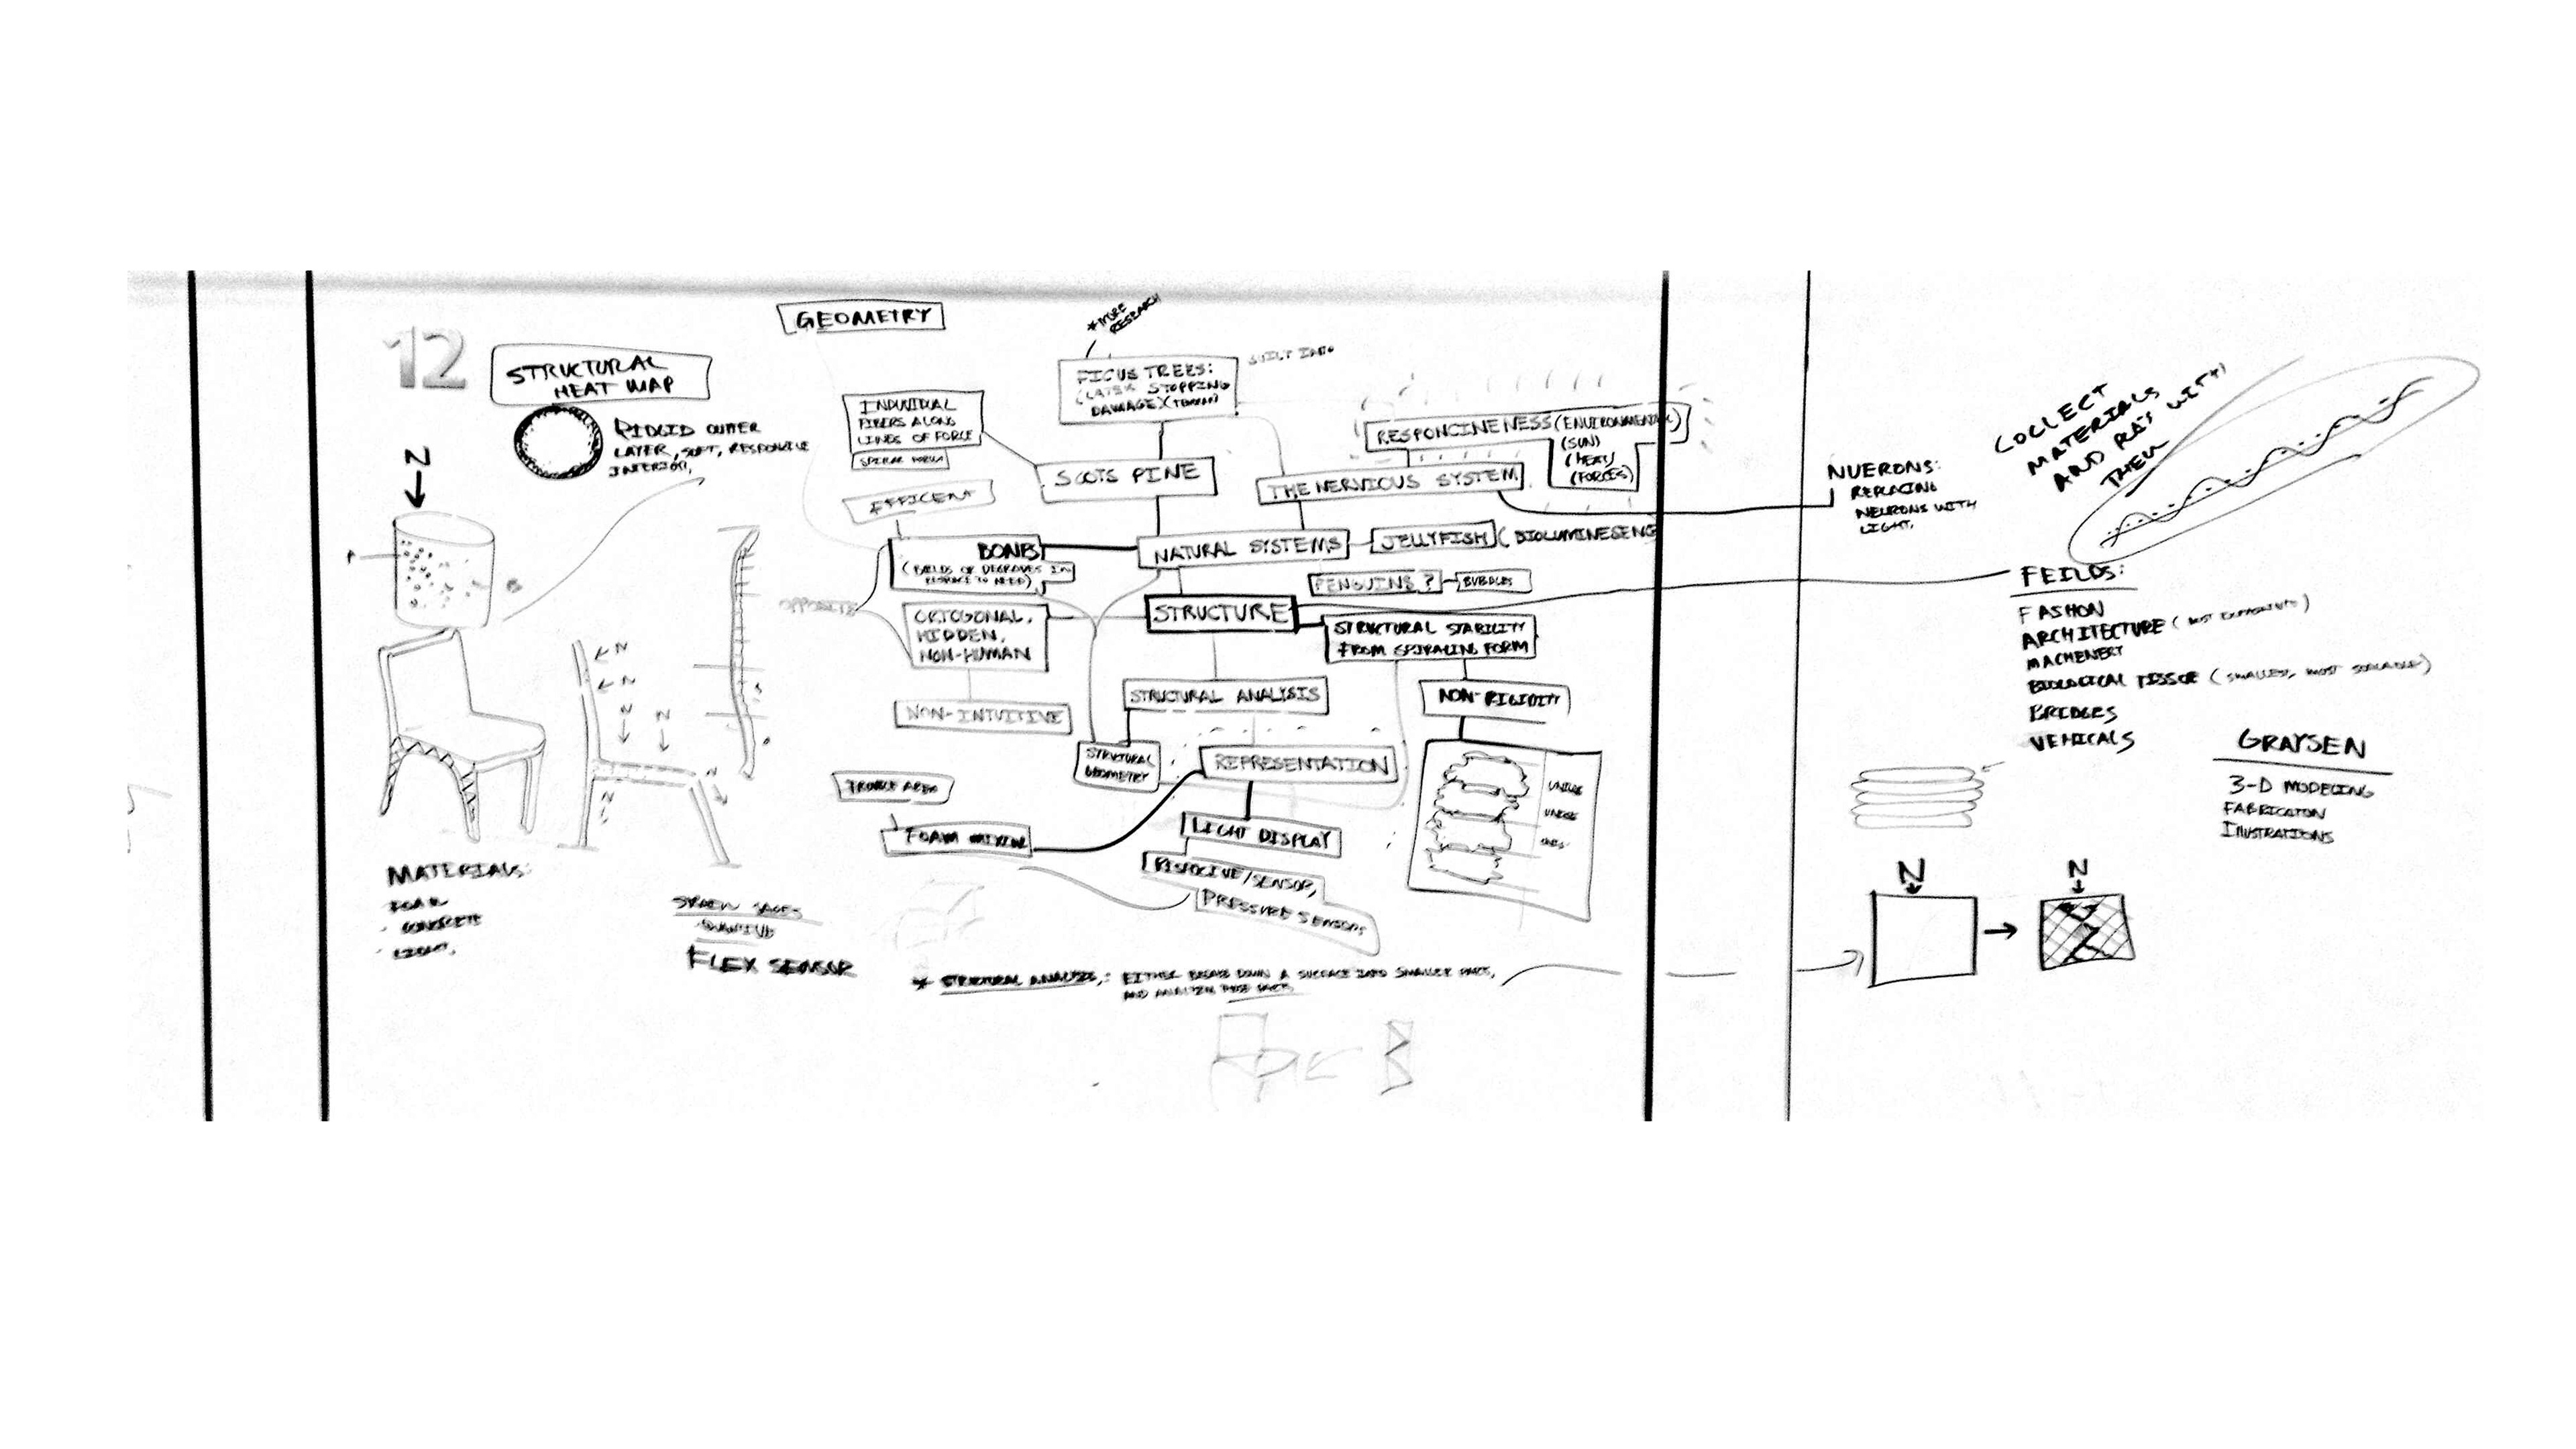 12
STRUCTURAL
HEAT MAP
RIDGID OUTTER
LAYER, SOFT, RESPONSIVE
INTERIOR,
N
GEOMETRY
* MORE
RESEARCH
FICUS TREES:
(LATEX STOPPING
DAMAGE)
BUILT INTO
INDIVIDUAL
FIBERS ALONG
LINES OF FORCE
SPIRAL FORM
SCOTS PINE
RESPONCINENESS (ENVIRONMENTAL)
(SUN)
(HEAT)
(FORCES)
THE NERVIOUS SYSTEM
EFFICENT
BONES
(FIELDS OF DEGRADES IN
RESPONCE TO NEED)
NATURAL SYSTEMS
JELLYFISH (BIOLUMINESENG
PENGUINS?
BUBBLES
OPPOSITE
ORTOGONAL,
HIDDEN,
NON-HUMAN
STRUCTURE
STRUCTURAL STABILITY
FROM SPIRALING FORM
NON-INTUITIVE
STRUCTURAL ANALYSIS
NON-RIGIDITY
STRUCTURAL
GEOMETRY
REPRESENTATION
TROUBLE AREA
FOAM MIXING
LIGHT DISPLAY
/SENSOR,
PRESSURE SENSORS
UNIQUE
UNIQUE
N
N
N
N
N
N
MATERIALS:
FOAM
· CONCRETE
· LIGHT,
FLEX SENSOR
* STRUCTURAL ANALYSIS,: EITHER BREAKS DOWN A SURFACE INTO SMALLER PARTS,
AND ANALYZES THOSE PARTS
NUERONS:
REPLACING
NEURONS WITH
LIGHT.
COLLECT
MATERIALS
AND PLAY WITH
THEM
FEILDS:
FASHON
ARCHITECTURE
MACHENERY
BIOLOGICAL TISSUE (SMALLEST, MOST SCALABLE)
BRIDGES
VEHICALS
GRAYSEN
3-D MODELING
FABRICATON
ILLUSTRATIONS
N
N